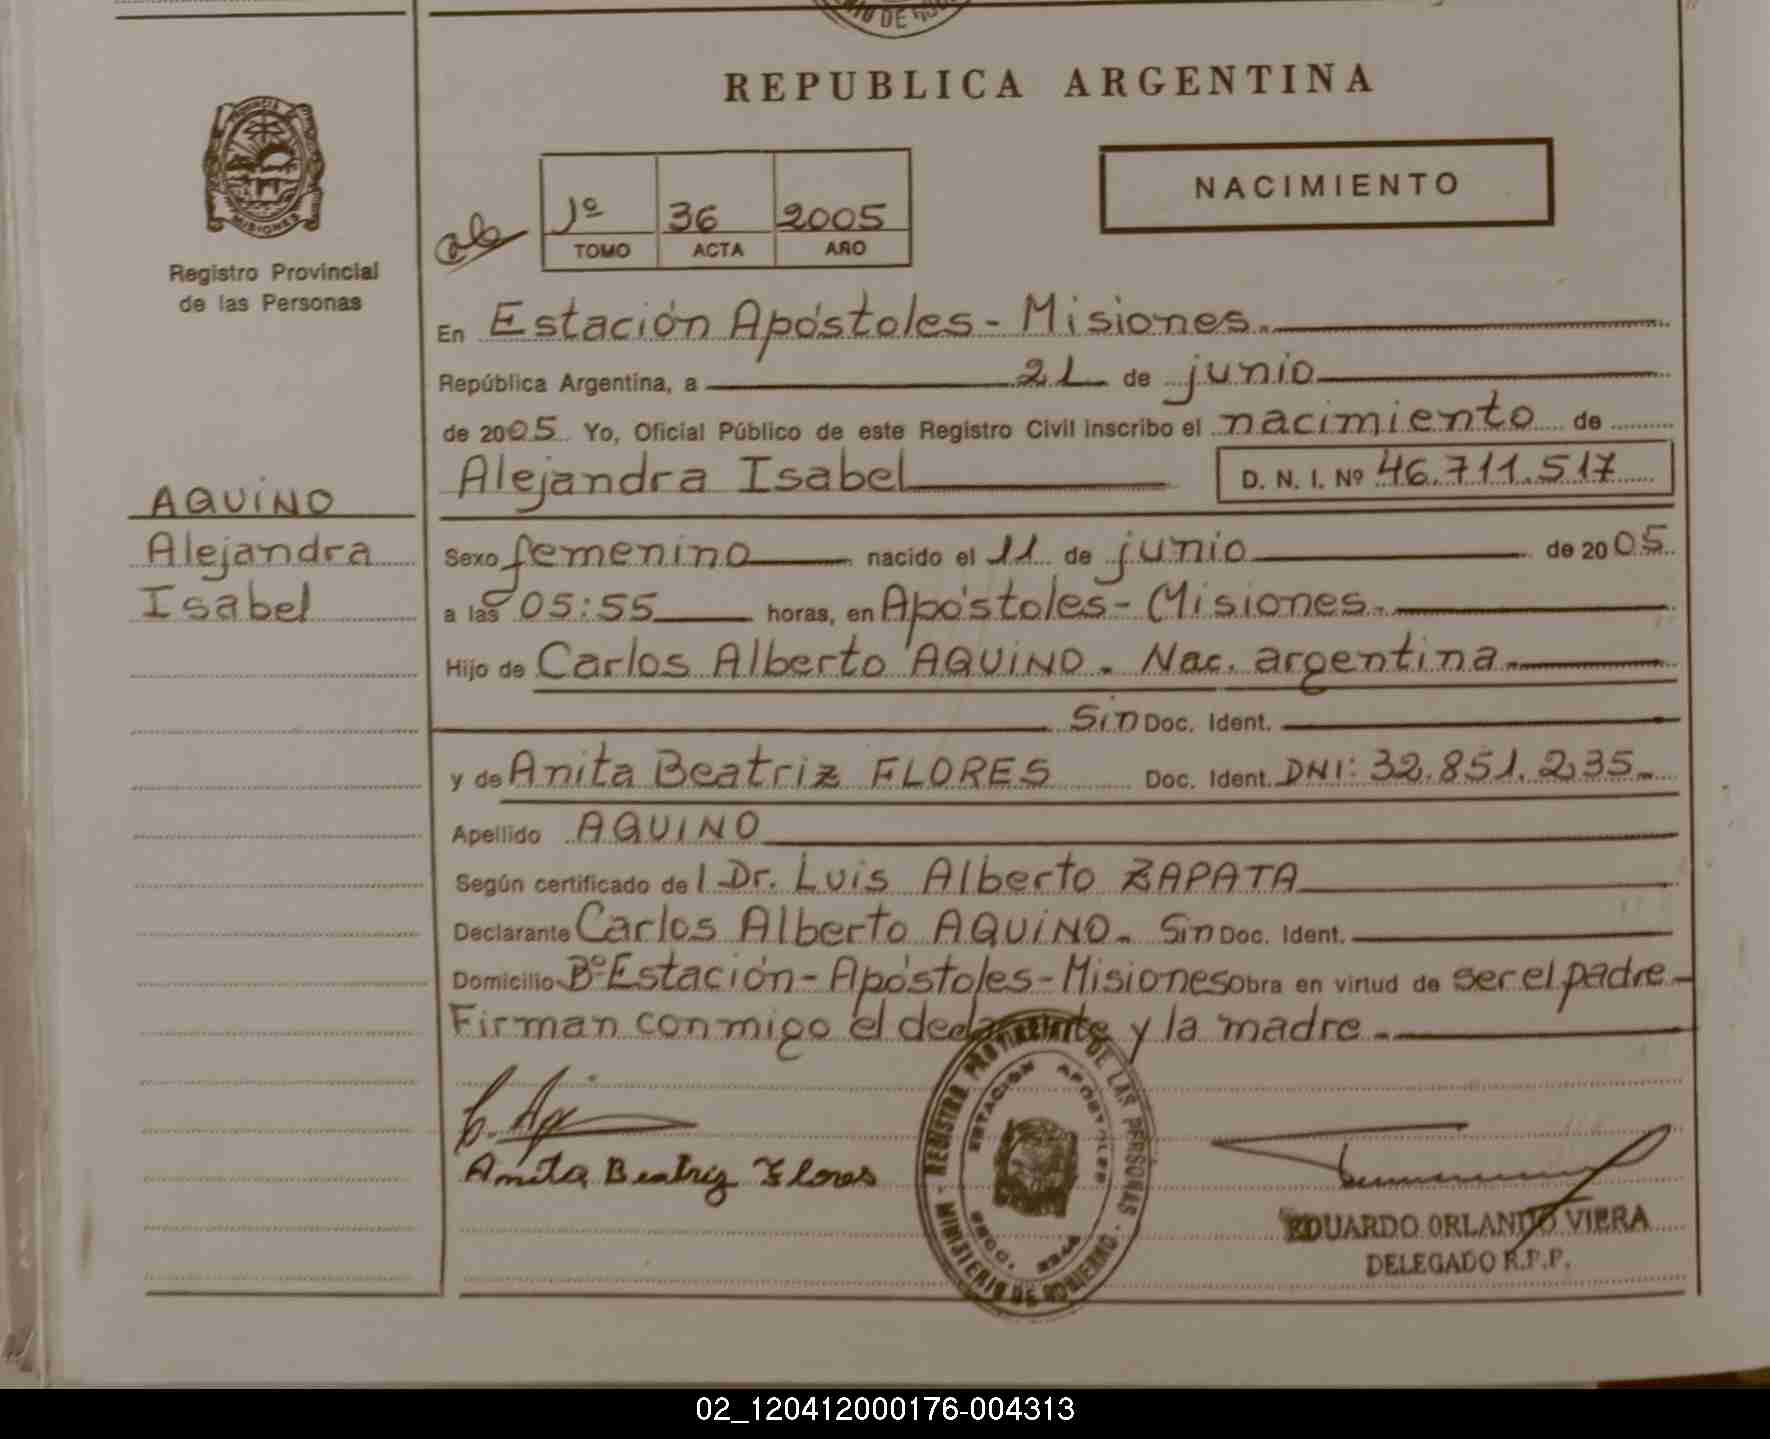 REPUBLICA ARGENTINA
NACIMIENTO
1º 36 2005
TOMO ACTA AÑO
MISIONES
Registro Provincial
de las Personas
En Estación Apóstoles - Misiones.
República Argentina, a 21 de junio
de 2005 Yo, Oficial Público de este Registro Civil inscribo el nacimiento de
Alejandra Isabel D. N. I. Nº 46.711.517
AQUINO
Alejandra
Isabel
Sexo femenino nacido el 11 de junio de 2005
a las 05:55 horas, en Apóstoles - Misiones.
Hijo de Carlos Alberto AQUINO. Nac. argentina
Sin Doc. Ident.
y de Anita Beatriz FLORES Doc. Ident. DNI: 32.851.235.
Apellido AQUINO
Según certificado del Dr. Luis Alberto ZAPATA
Declarante Carlos Alberto AQUINO. Sin Doc. Ident.
Domicilio Bº Estación - Apóstoles - Misiones obra en virtud de ser el padre
Firman conmigo el declarante y la madre.
Anita Beatriz Flores
REGISTRO PROVINCIAL DE LAS PERSONAS
ESTACION APOSTOLES
MINISTERIO DE GOBIERNO
EDUARDO ORLANDO VIERA
DELEGADO R.P.P.
02_120412000176-004313